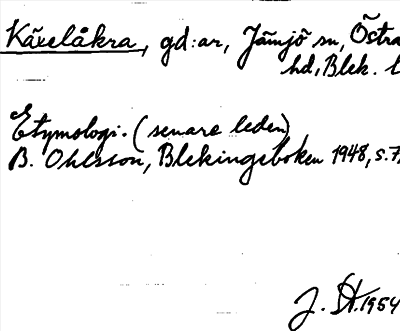 Käxelåkra, gd:ar, Jämjö sn, Östra
hd, Blek. l
Etymologi. (senare leden)
B. Ohlsson, Blekingeboken 1948, s. 7
J. St. 1954